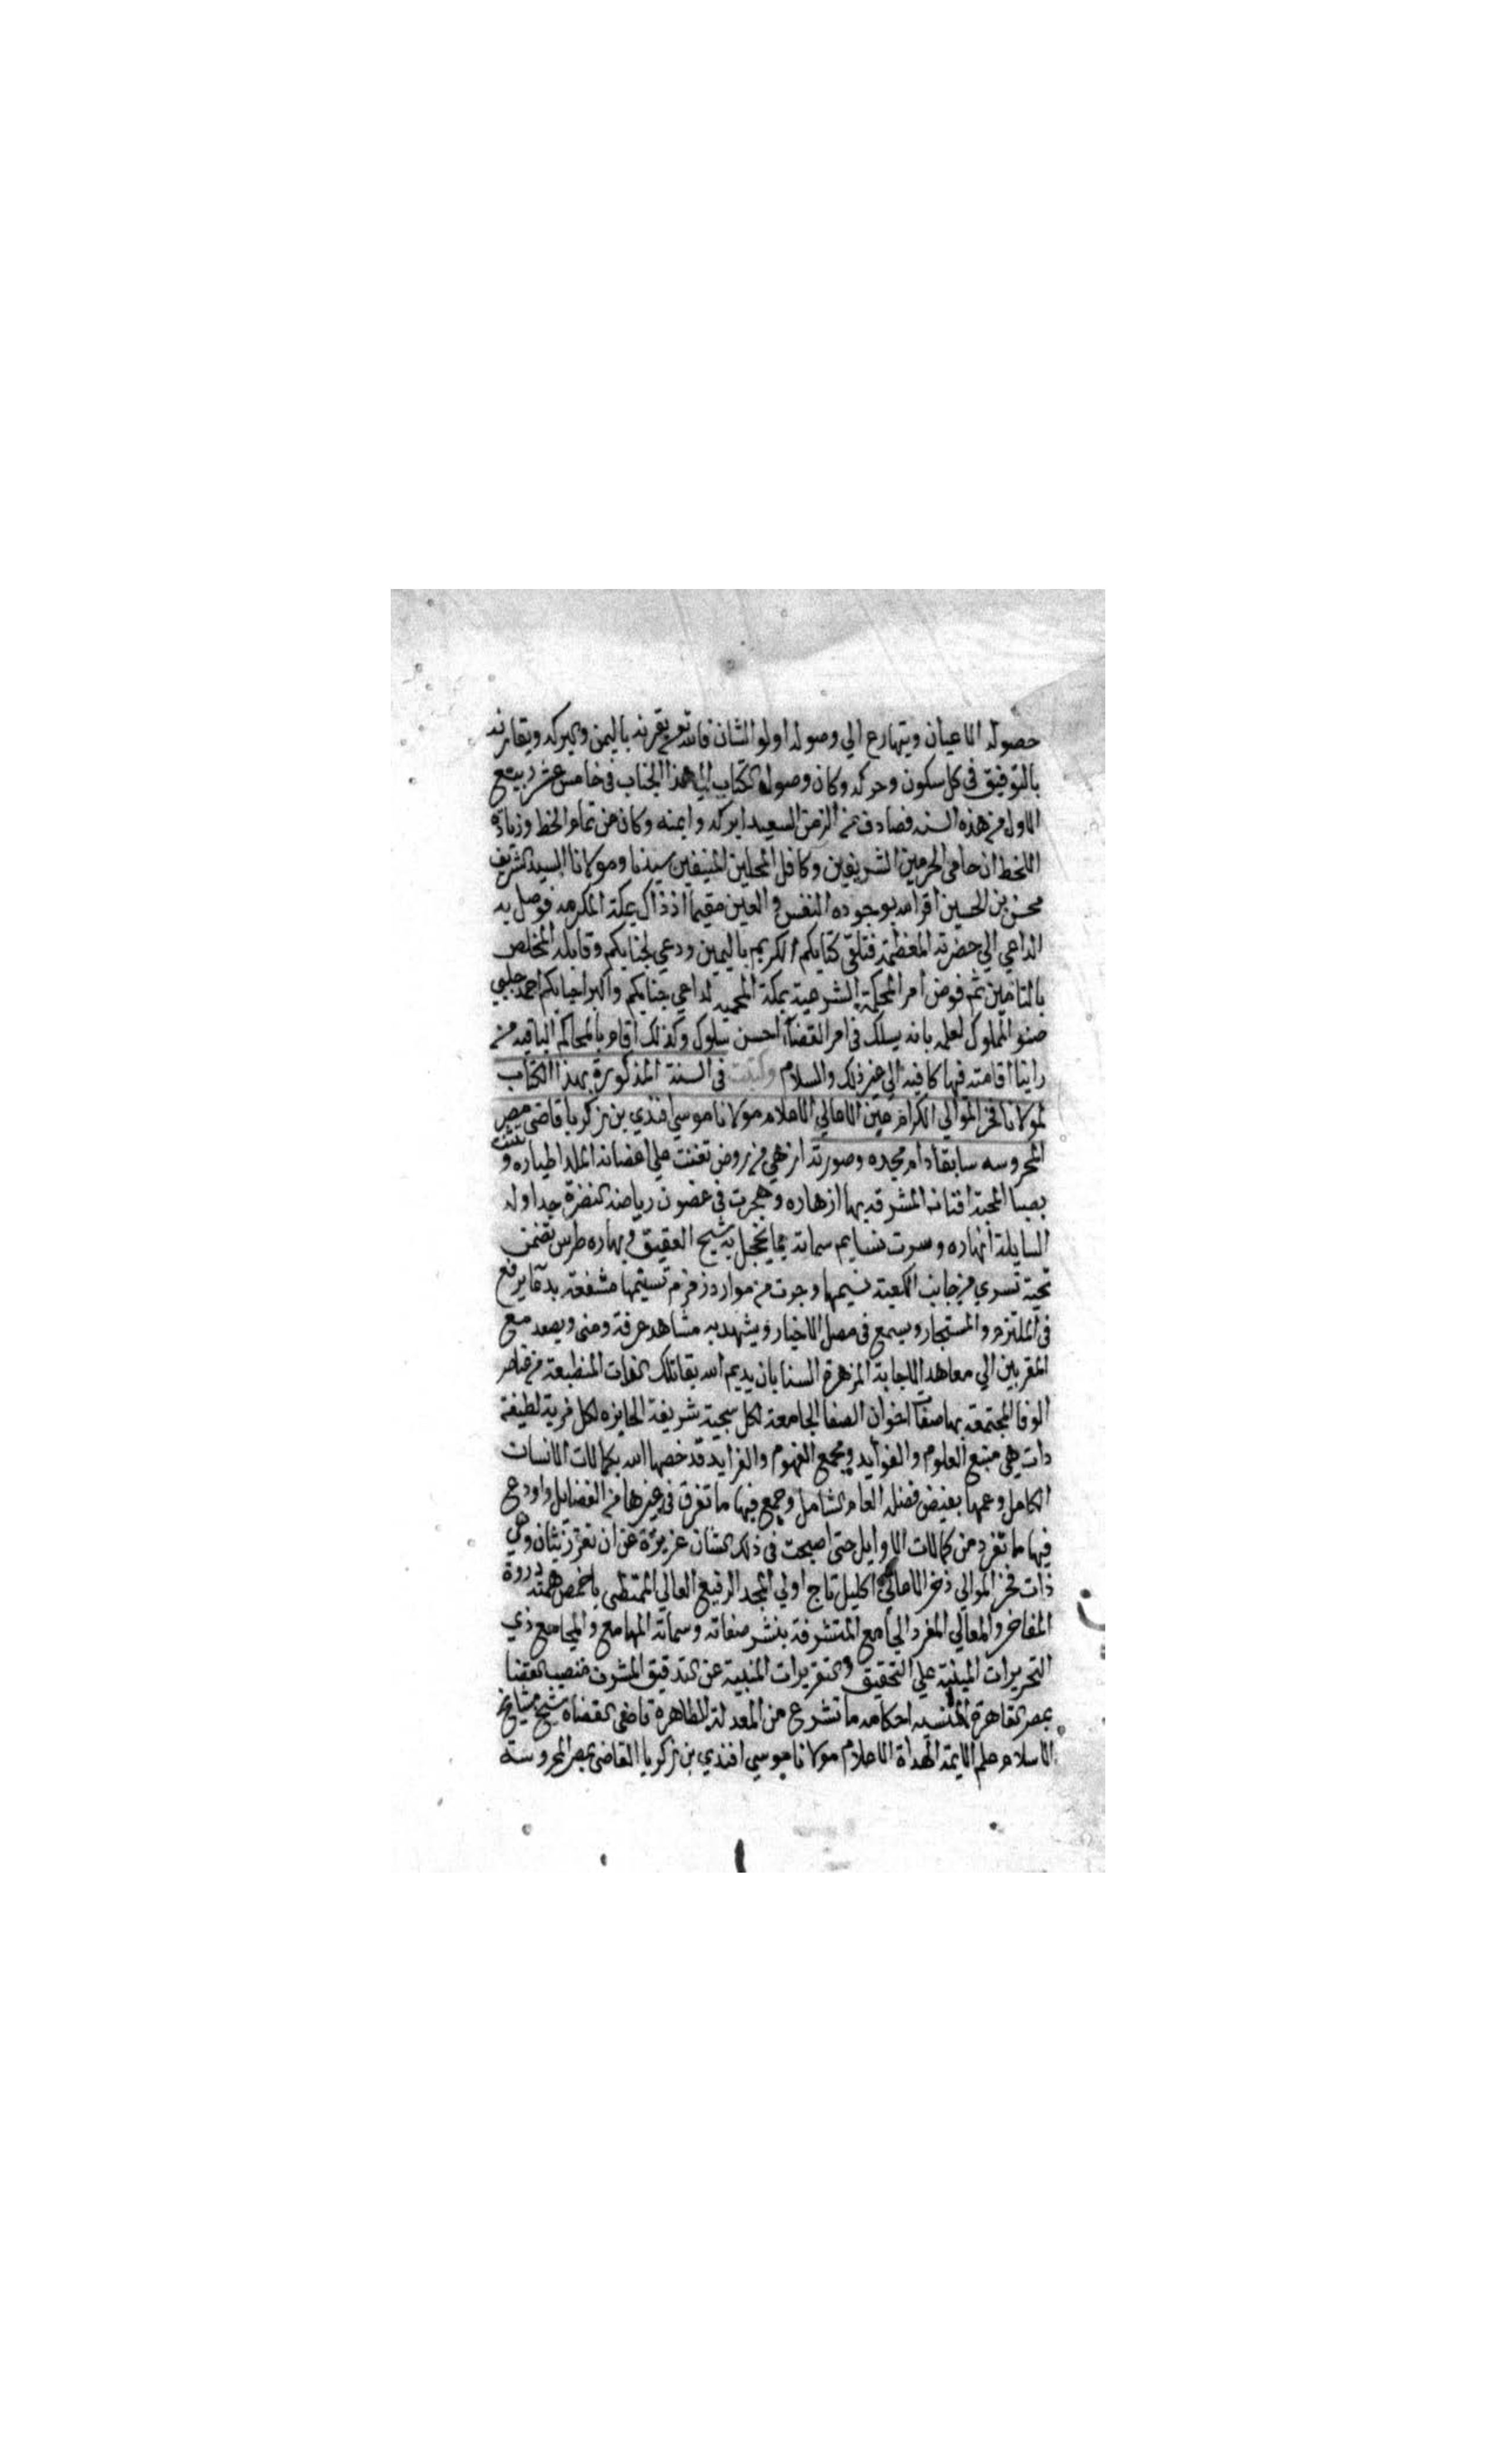 حصوله الاعيان ويتهارع الي وصوله اولوا الشان فالله تعالى يقرنه باليمن والبركه ويقارنه
بالتوفيق في كل سكون وحركه وكان وصول الكتاب الي هذا الجناب في خامس عشر ربيع
الاول من هذه السنه فصادف من الزمن السعيد ابركه وايمنه وكان من تمام الحظ وزيادة
اللحظ ان حامي الحرمين الشريفين وكافل المحلين المنيفين سيدنا ومولانا السيد الشريف
محسن بن الحسين اقر الله بوجوده النفس والعين مقيما اذ ذاك بمكة المكرمه فوصل به
الداعي الي حضرته المعظمة فتلقي كتابكم الكريم باليمين ودعي لجنابكم وقابله المخلص
بالتامين ثم فوض امر المحكمة الشرعية بمكة المحميه لداعي جنابكم واكبر احبابكم احمد جلبي
صنو المملوك لعلمه بانه يسلك في امر القضا احسن سلوك وكذلك اقام بالمحاكم الباقيه من
راينا اقامته فيها كافيه الي غير ذلك والسلام وكتبت في السنة المذكورة بهذا الكتاب
لمولانا فخر الموالي الكرام عين الاهالي الاعلام مولانا موسي افندي بن زكريا قاضي مصر
المحروسه سابقا دام مجده وصورته ازهي من روض تغنت علي اغصانه الملد اطياره و
بصبا المحبة افنانه المشرقه بها ازهاره وجرت في غضون رياضه النضرة جداوله
السايلة انهاره وسرت نسايم سماته بما يخجل به شيح العقيق وبهاره طرس تضمن
تحية تسري من جانب الكعبة نسيمها وجرت من موارد زمزم تسنيمها مشفعة بدعا يرفع
في الملتزم والمستجار ويسمع في مصل الاخيار ويشهد به مشاهد عرفة ومني ويصعد مع
المقربين الي معاهد الاجابة المزهرة السنا بان يديم الله بقا تلك الذات المنطبعة من عناصر
الوفا المجتمعه بها صفات اخوان الصفا الجامعة لكل سجية شريفة الحايزه لكل مزية لطيفة
ذات هي منبع العلوم والفوايد ومجمع الفهوم والفرايد قد خصها الله بكمالات الانسان
الكامل وعمها بفيض فضله العام الشامل وجمع فيها ما تفرق في غيرها من الفضايل واودع
فيها ما تفرد من كمالات الاوايل حتي اصبحت في ذلك الشان عزيزة عن ان تعزز بثان وهي
ذات فخر الموالي ذخر الاهالي اكليل تاج اولي المجد الرفيع العالي الممتطي باخمص همته ذروة
المفاخر والمعالي المفرد الجامع المتشرفة بنشر صفاته وسماته المهامع والمجامع ذي
التحريرات المبنية علي التحقيق والتقريرات المنبية عن التدقيق المشرف منصب القضا
بمصر القاهرة احكامه ما تشرع من المعدلة الظاهرة قاضي القضاه شيخ مشايخ
الاسلام علم الايمة الهداة الاعلام مولانا موسي افندي بن زكريا القاضي بمصر المحروسة